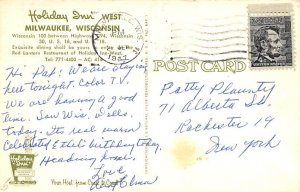 Holiday Inn WEST
MILWAUKEE, WISCONSIN
Wisconsin 100 between Highways 94,
30, U. S. 16, and U. S. 18.
Exquisite dining shall be yours in the
Red Lantern Restaurant of Holiday Inn-West.
Tel: 771-4400 — AC. 414
Hi Pat! We're staying
here tonight. Color T.V.
We are having a good
time. Saw Wis. Dells
today. Its real warm.
Celebrated Esta's birthday today.
Heading home.
Love
POST CARD
Patty Plaunty
71 Alberta St.
Rochester 19
New York
Holiday Inn
Your Host from Coast to Coast